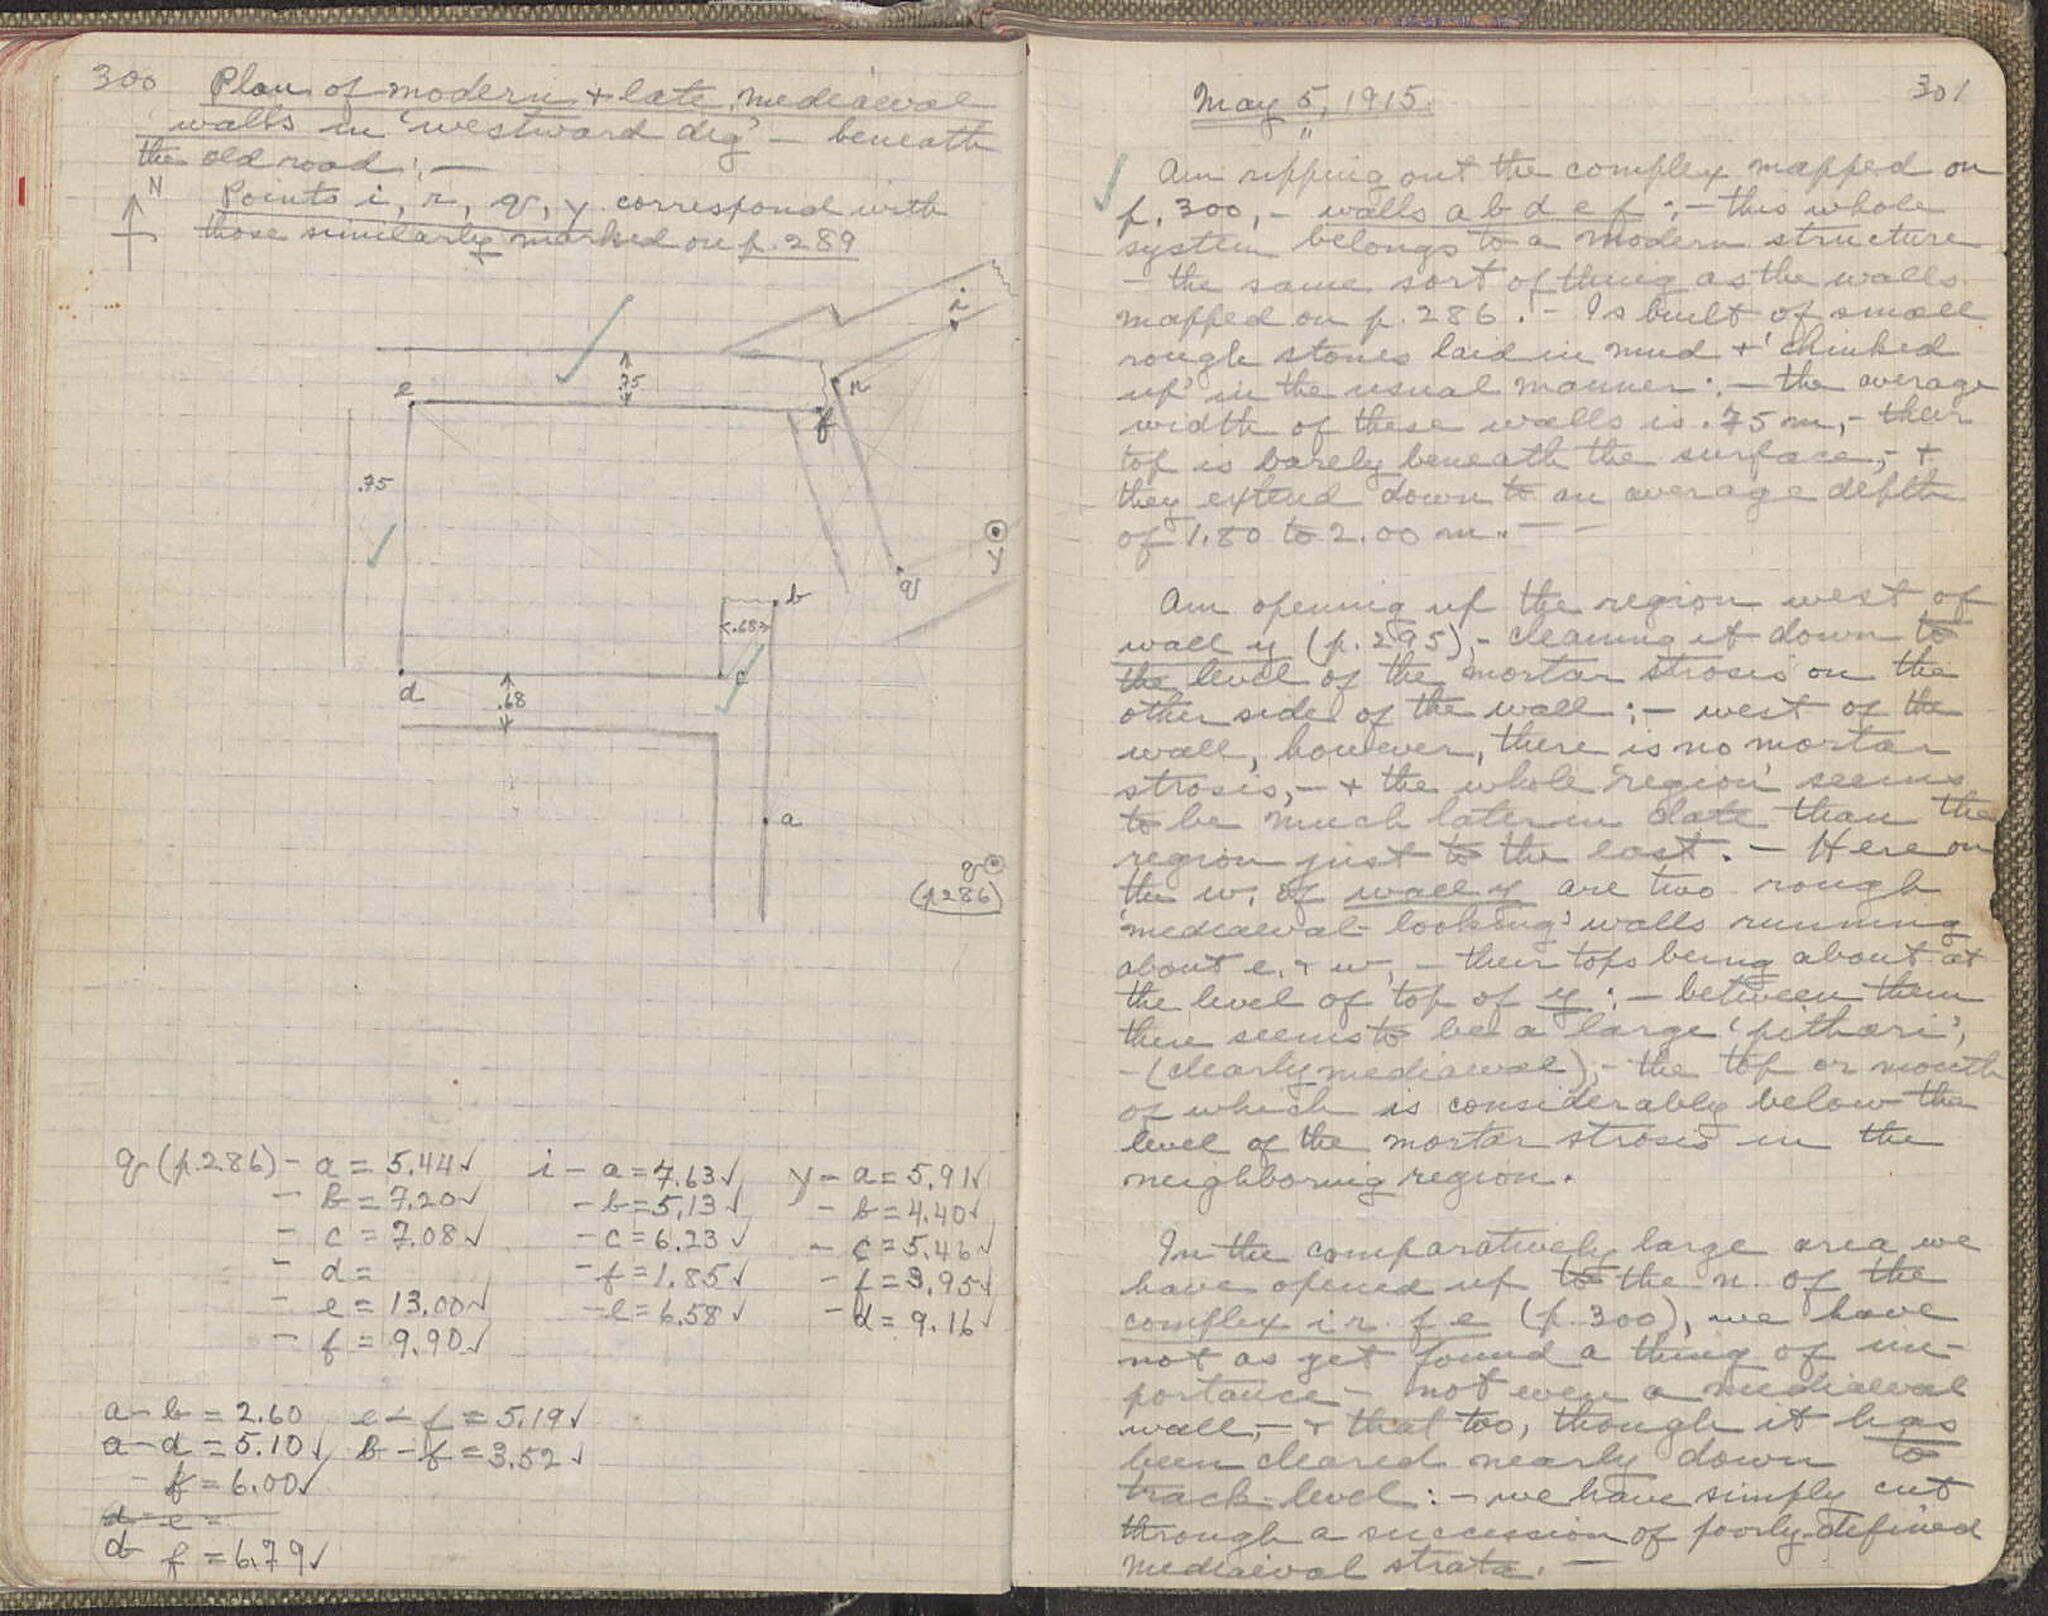 300 Plan of modern + late mediaeval
walls in 'westward dig' – beneath
the old road :–
N
Points i, r, q, y correspond with
those similarly marked on p. 289
i
.75
e
r
f
.75
y
q
b
<.68>
c
d
.68
a
q
(p286)
q (p.286) – a = 5.44 ✓ i – a = 7.63 ✓ y – a = 5.91 ✓
– b = 7.20 ✓ – b = 5.13 ✓ – b = 4.40 ✓
– c = 7.08 ✓ – c = 6.23 ✓ – c = 5.46 ✓
– d = – f = 1.85 ✓ – f = 3.95 ✓
– e = 13.00 ✓ – e = 6.58 ✓ – d = 9.16 ✓
– f = 9.90 ✓
a – b = 2.60 e – f = 5.19 ✓
a – d = 5.10 ✓ b – f = 3.52 ✓
– f = 6.00 ✓
d – e =
d f = 6.79 ✓
301
May 5, 1915.
Am ripping out the complex mapped on
p. 300, – walls a b d e f :– this whole
system belongs to a modern structure
– the same sort of thing as the walls
mapped on p. 286. – Is built of small
rough stones laid in mud + 'chinked
up' in the usual manner :– the average
width of these walls is .75 m, – their
top is barely beneath the surface, – +
they extend down to an average depth
of 1.80 to 2.00 m. – –
Am opening up the region west of
wall y (p. 295), – cleaning it down to
the level of the mortar strosis on the
other side of the wall ; – west of the
wall, however, there is no mortar
strosis, – + the whole 'region' seems
to be much later in date than the
region just to the east. – Here on
the w. of wall y are two rough
'mediaeval-looking' walls running
about e. + w, – their tops being about at
the level of top of y : – between them
there seems to be a large 'pithari',
– (clearly mediaeval), – the top or mouth
of which is considerably below the
level of the mortar strosis in the
neighboring region.
In the comparatively large area we
have opened up to the n. of the
complex i r f e (p. 300), we have
not as yet found a thing of im-
portance – not even a mediaeval
wall, – + that too, though it has
been cleared nearly down to
track-level : – we have simply cut
through a succession of poorly-defined
mediaeval strata. –